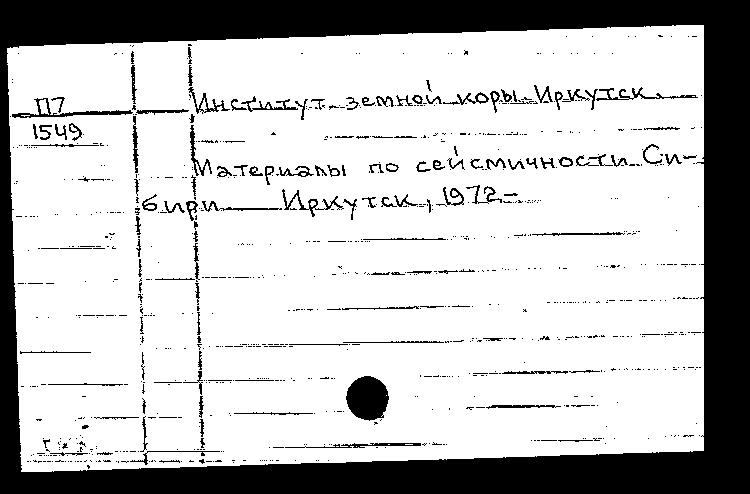 П7
1549
Институт земной коры. Иркутск.
Материалы по сейсмичности Си-
бири Иркутск, 1972-